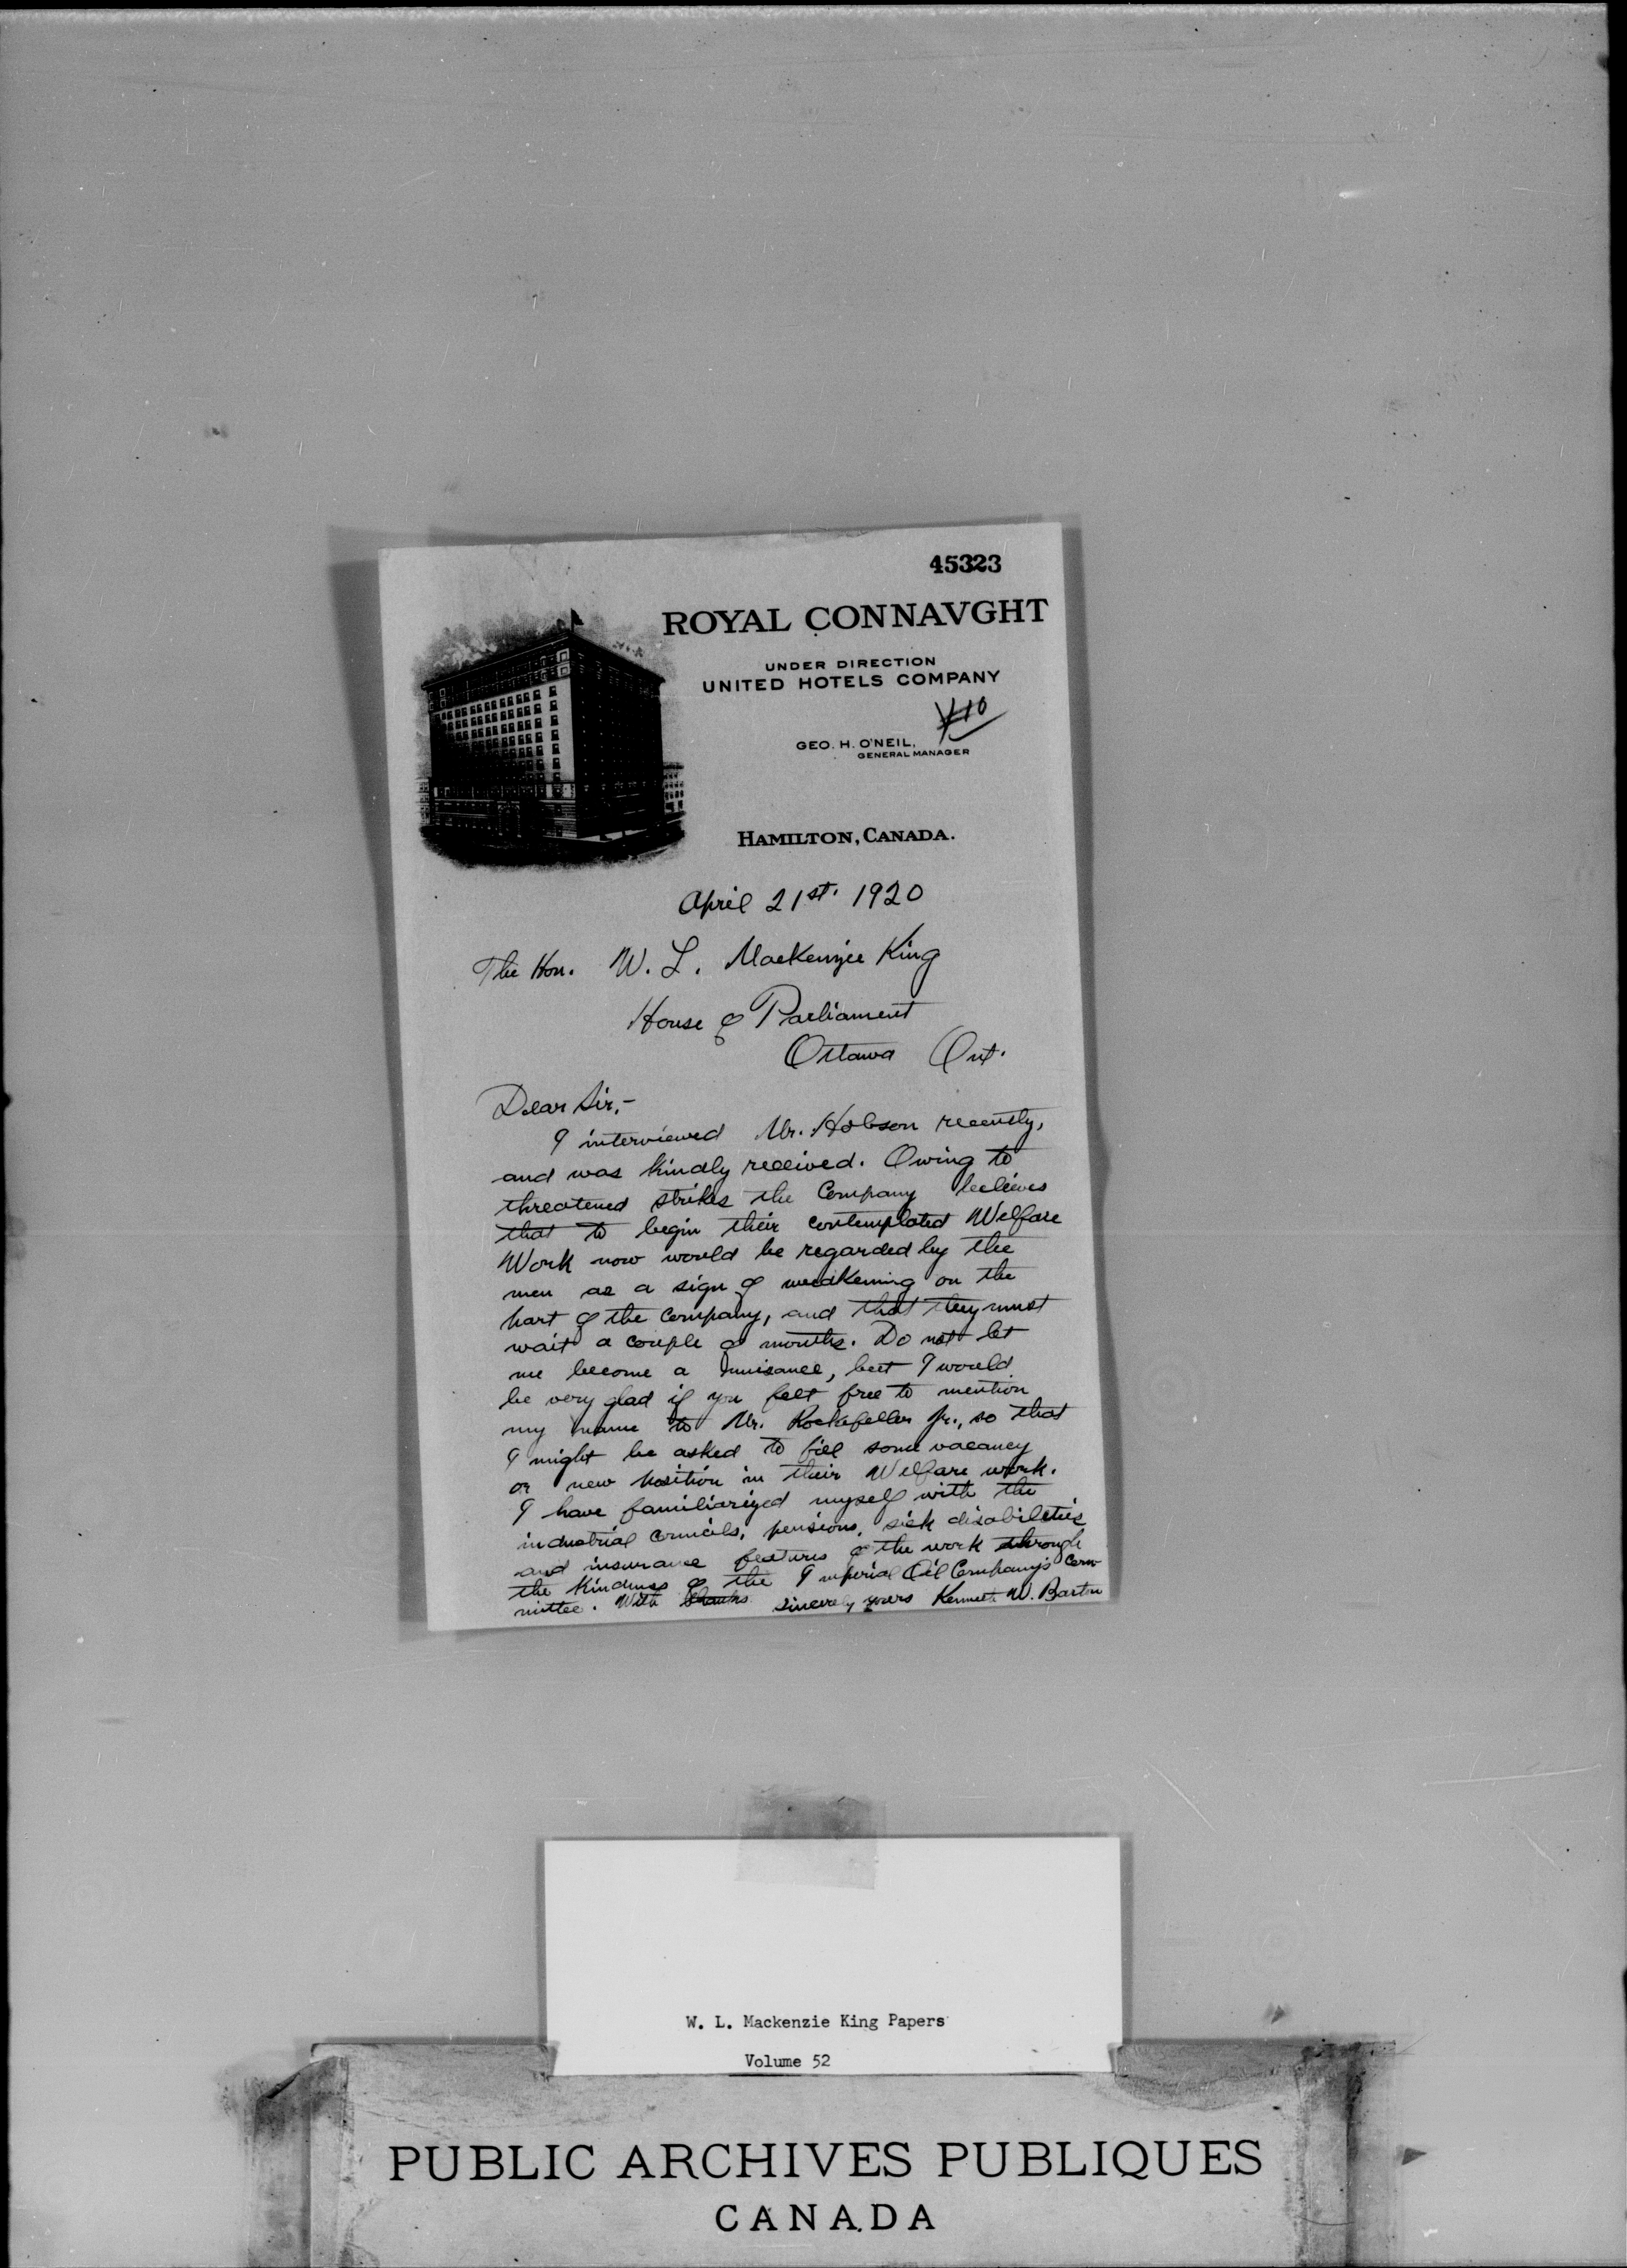 45323
ROYAL CONNAVGHT
UNDER DIRECTION
UNITED HOTELS COMPANY
GEO. H. O'NEIL,
GENERAL MANAGER
HAMILTON, CANADA.
April 21st. 1920
The Hon. W. L. MacKenzie King
House of Parliament
Ottawa Ont.
Dear Sir,-
I interviewed Mr. Hobson recently,
and was kindly received. Owing to
threatened strikes the Company believes
that to begin their contemplated Welfare
Work now would be regarded by the
men as a sign of weakening on the
part of the Company, and that they must
wait a couple of months. Do not let
me become a nuisance, but I would
be very glad if you felt free to mention
my name to Mr. Rockefeller Jr., so that
I might be asked to fill some vacancy
or new position in their Welfare work.
I have familiarized myself with the
industrial councils, pensions, sick disabilities
and insurance features of the work through
the kindness of the Imperial Oil Company's Com-
mittee. With thanks sincerely yours Kenneth W. Barton
W. L. Mackenzie King Papers
Volume 52
PUBLIC ARCHIVES PUBLIQUES
CANADA